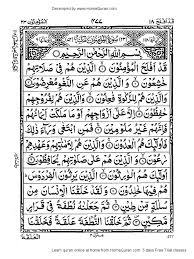 Developed by www.HomeQuran.com
قد افلح ١٨ ٤٧٧ المؤمنون ٢٣
بِسْمِ اللّٰهِ الرَّحْمٰنِ الرَّحِيْمِ
قَدْ اَفْلَحَ الْمُؤْمِنُوْنَ الَّذِيْنَ هُمْ فِيْ صَلَاتِهِمْ
خٰشِعُوْنَ وَالَّذِيْنَ هُمْ عَنِ اللَّغْوِ مُعْرِضُوْنَ
وَالَّذِيْنَ هُمْ لِلزَّكٰوةِ فٰعِلُوْنَ وَالَّذِيْنَ هُمْ لِفُرُوْجِهِمْ
حٰفِظُوْنَ اِلَّا عَلٰٓى اَزْوَاجِهِمْ اَوْ مَا مَلَكَتْ اَيْمَانُهُمْ
فَاِنَّهُمْ غَيْرُ مَلُوْمِيْنَ فَمَنِ ابْتَغٰى وَرَآءَ ذٰلِكَ فَاُولٰٓئِكَ
هُمُ الْعٰدُوْنَ وَالَّذِيْنَ هُمْ لِاَمٰنٰتِهِمْ وَعَهْدِهِمْ رٰعُوْنَ
وَالَّذِيْنَ هُمْ عَلٰى صَلَوٰتِهِمْ يُحَافِظُوْنَ اُولٰٓئِكَ هُمُ
الْوٰرِثُوْنَ الَّذِيْنَ يَرِثُوْنَ الْفِرْدَوْسَ هُمْ فِيْهَا خٰلِدُوْنَ
وَلَقَدْ خَلَقْنَا الْاِنْسَانَ مِنْ سُلٰلَةٍ مِّنْ طِيْنٍ ثُمَّ جَعَلْنٰهُ نُطْفَةً فِيْ قَرَارٍ
مَّكِيْنٍ ثُمَّ خَلَقْنَا النُّطْفَةَ عَلَقَةً فَخَلَقْنَا
Learn quran online at home from HomeQuran.com 3 days Free Trial classes